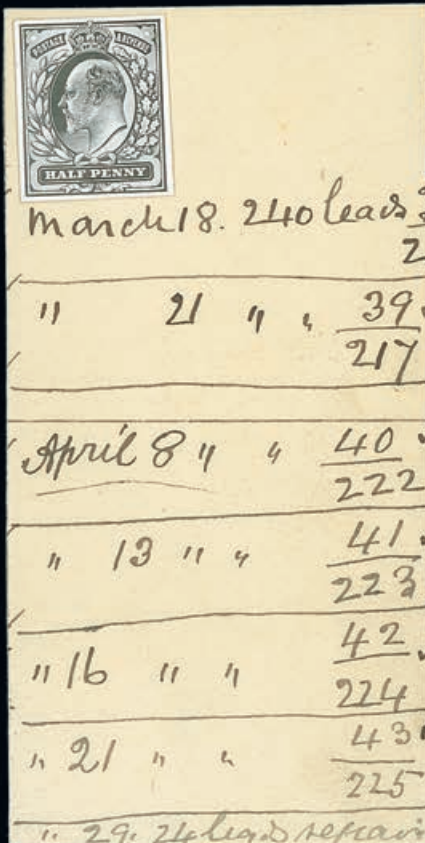 POSTAGE REVENUE
HALF PENNY
March 18. 240 leads
2
" 21 " " 39
217
April 8 " " 40
222
" 13 " " 41
223
" 16 " " 42
224
" 21 " " 43
225
" 29. 24 leads